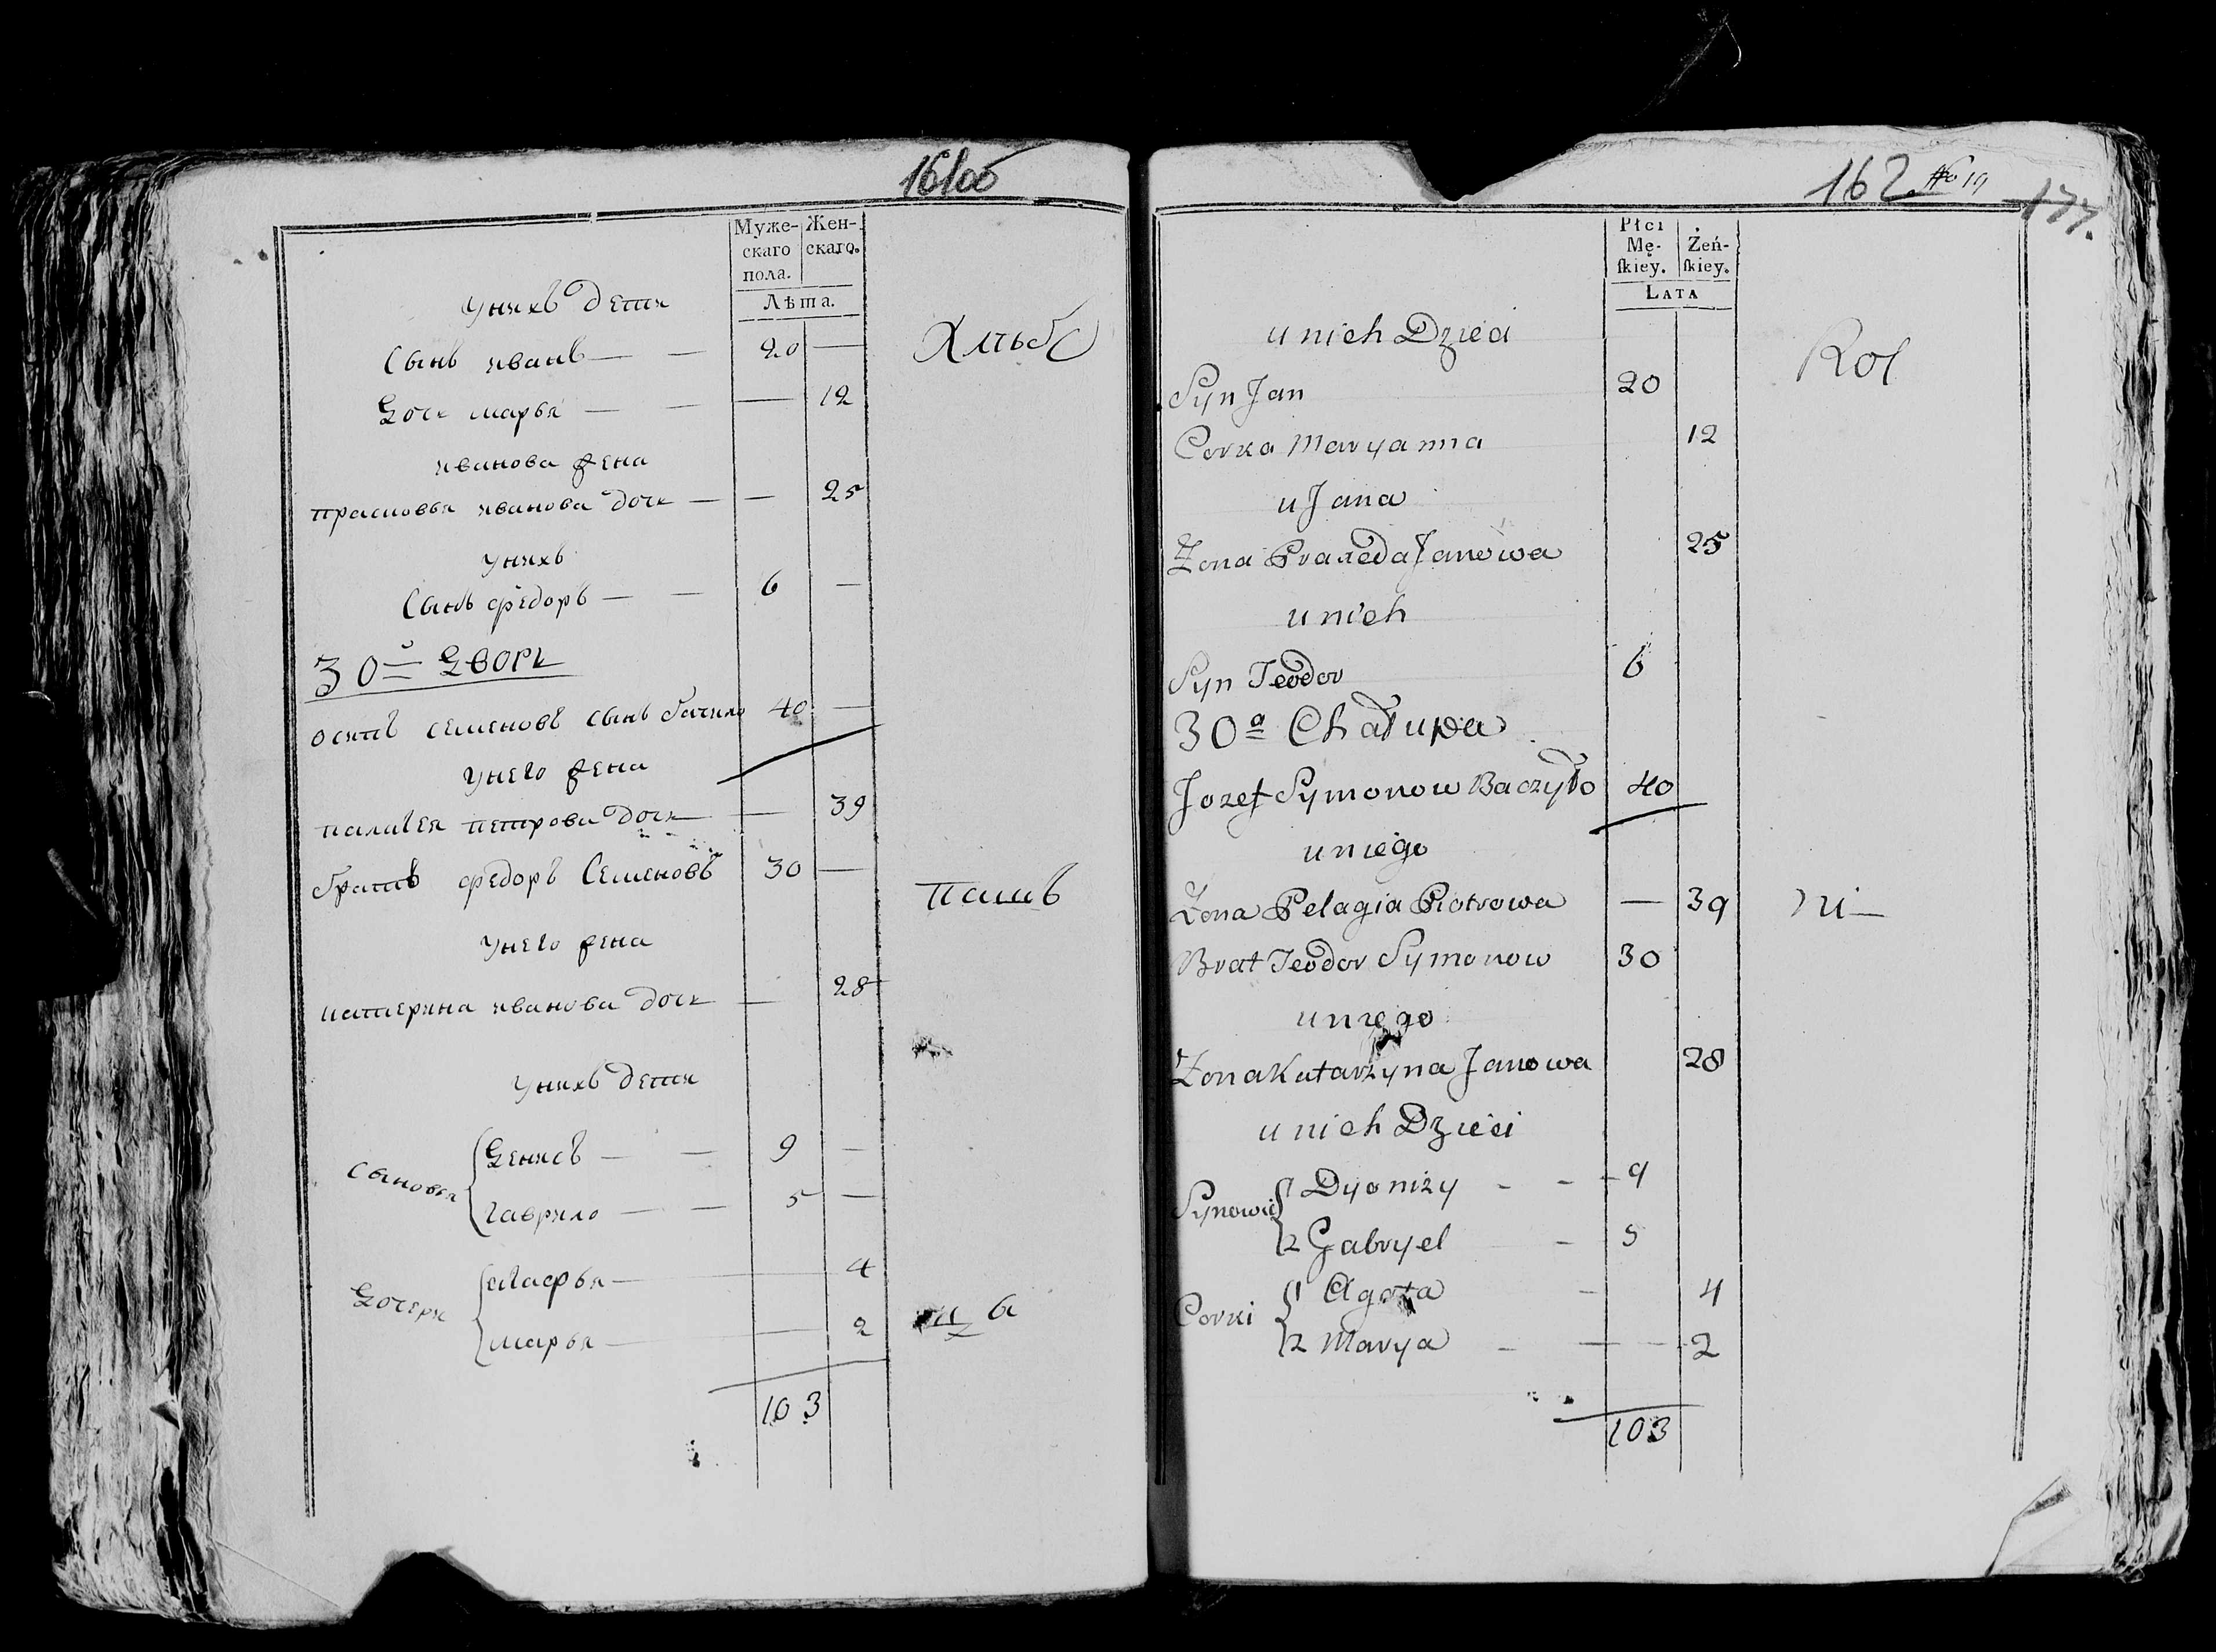 Муже-
скаго
пола.
Жен-
скаго.
Лѣта.
Унихъ дети
Сынъ иванъ — — 20 —
Дочь марья — — — 12
иванова жена
прасковья иванова дочь — — 25
Унихъ
Сынъ федоръ — — 6 —
Хлѣб
30й Дворъ
осипъ семеновъ сынъ бачило 40 —
Унего жена
палагея петрова дочь — 39
братъ федоръ Семеновъ 30 —
Унего жена
катерина иванова дочь — 28
Унихъ дети
Сыновья
Денисъ — — 9 —
гаврило — — 5 —
Дочери
агафья — 4
марья — — 2
103
паш
162 No 19
177.
Płci
Mę-
ſkiey.
Żeń-
ſkiey.
LATA
u nich Dzieci
Syn Jan 20
Corka Maryanna 12
u Jana
Żona Praxeda Janowa 25
u nich
Syn Teodor 6
Rol
30a Chałupa
Jozef Symonow Baczyło 40
u niego
Żona Pelagia Piotrowa — 39
Brat Teodor Symonow 30
u niego
Żona Katarzyna Janowa 28
u nich Dzieci
Synowie
1 Dyonizy - - - 9
2 Gabryel - 5
Corki
1 Agata - 4
2 Marya - — - 2
103
ni—